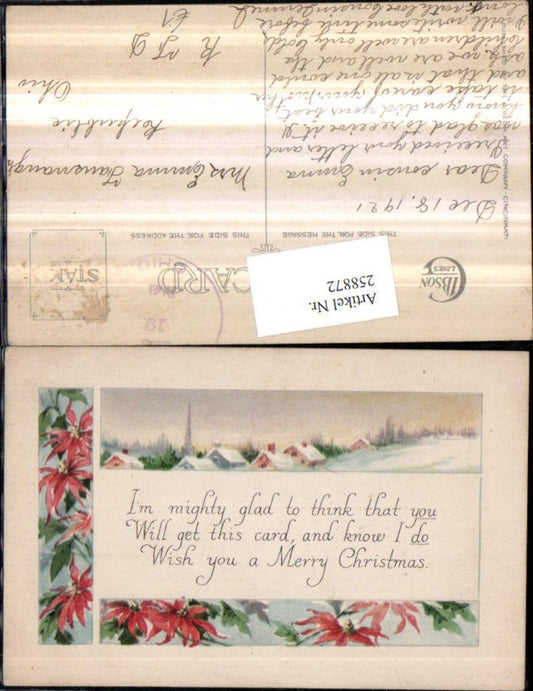 Dec 18. 1921
Dear cousin Emma
I received your letter and
was glad to receive it. I
know you did your best
to take care of your
and that is all any could
we are well and the
children are well only cold
I will write some time before
long.
Mrs Emma
Republic
Ohio
THIS SIDE FOR THE MESSAGE
THIS SIDE FOR THE ADDRESS
CARD
GIBSON
LINES
ART COMPANY, CINCINNATI
Artikel Nr.
258872
I'm mighty glad to think that you
Will get this card, and know I do
Wish you a Merry Christmas.